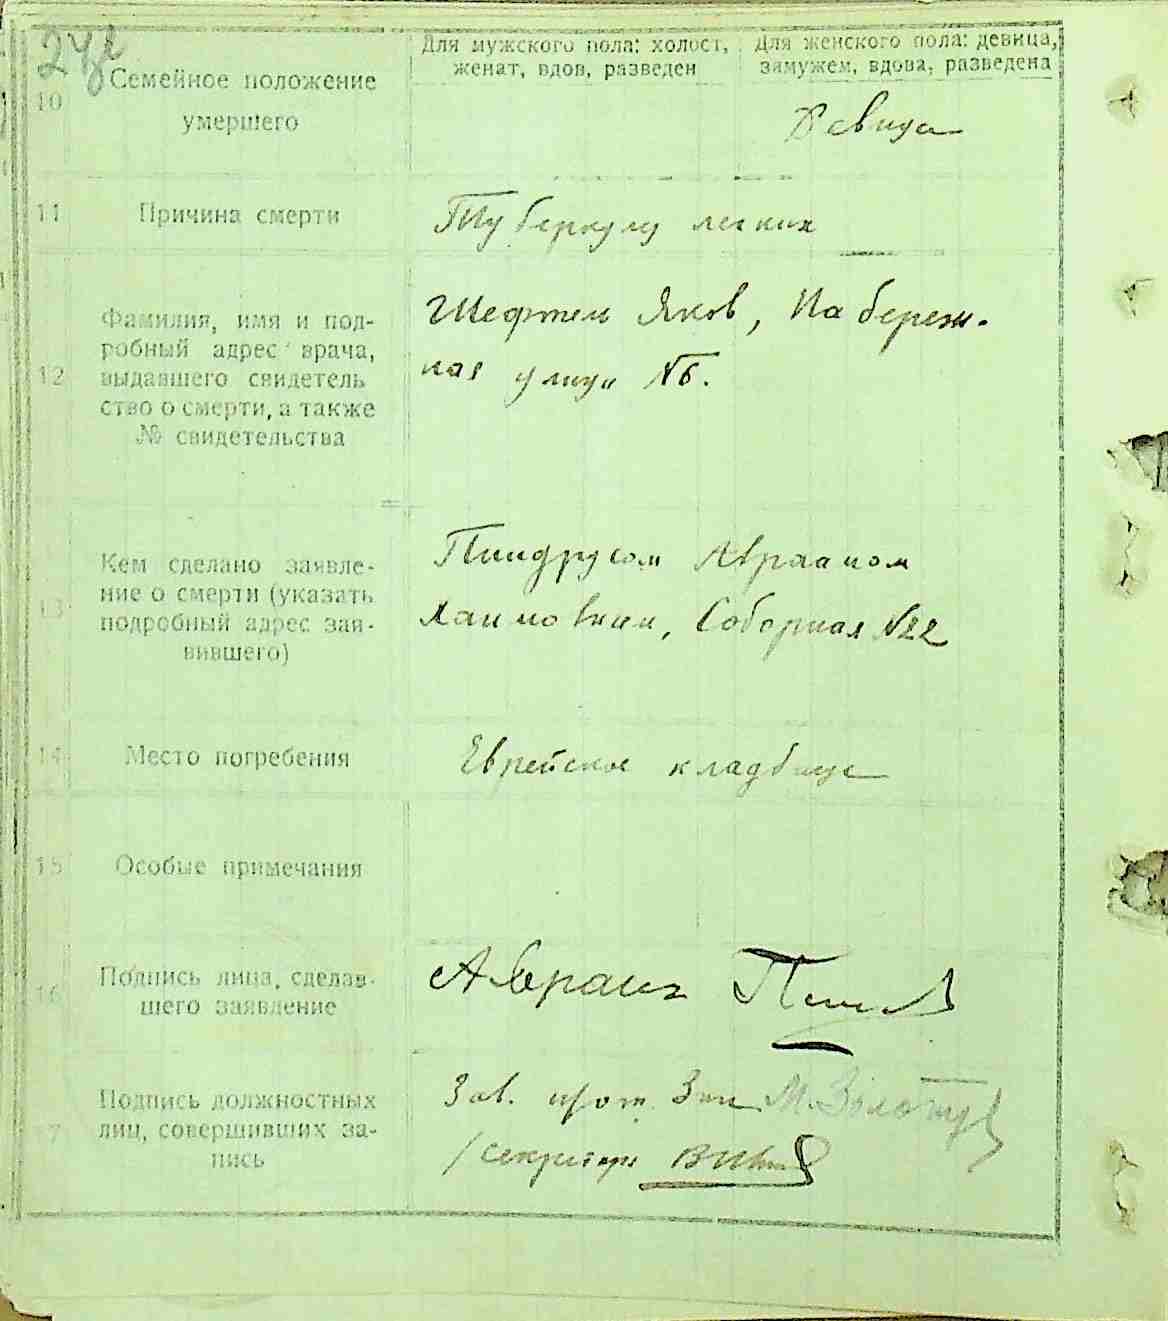 Для мужского пола: холост,
женат, вдов, разведен
Для женского пола: девица,
замужем, вдова, разведена
10
Семейное положение
умершего
Девица
11
Причина смерти
Туберкулез легких
12
Фамилия, имя и под-
робный адрес врача,
выдавшего свидетель
ство о смерти, а также
№ свидетельства
Шефтель Яков, Набереж-
ная улица №6.
13
Кем сделано заявле-
ние о смерти (указать
подробный адрес зая-
вившего)
Пиндрусом Авраамом
Хаимовичем, Соборная №22
14
Место погребения
Еврейское кладбище
15
Особые примечания
16
Подпись лица, сделав-
шего заявление
Авраам
17
Подпись должностных
лиц, совершивших за-
пись
Зав.
/секретарь